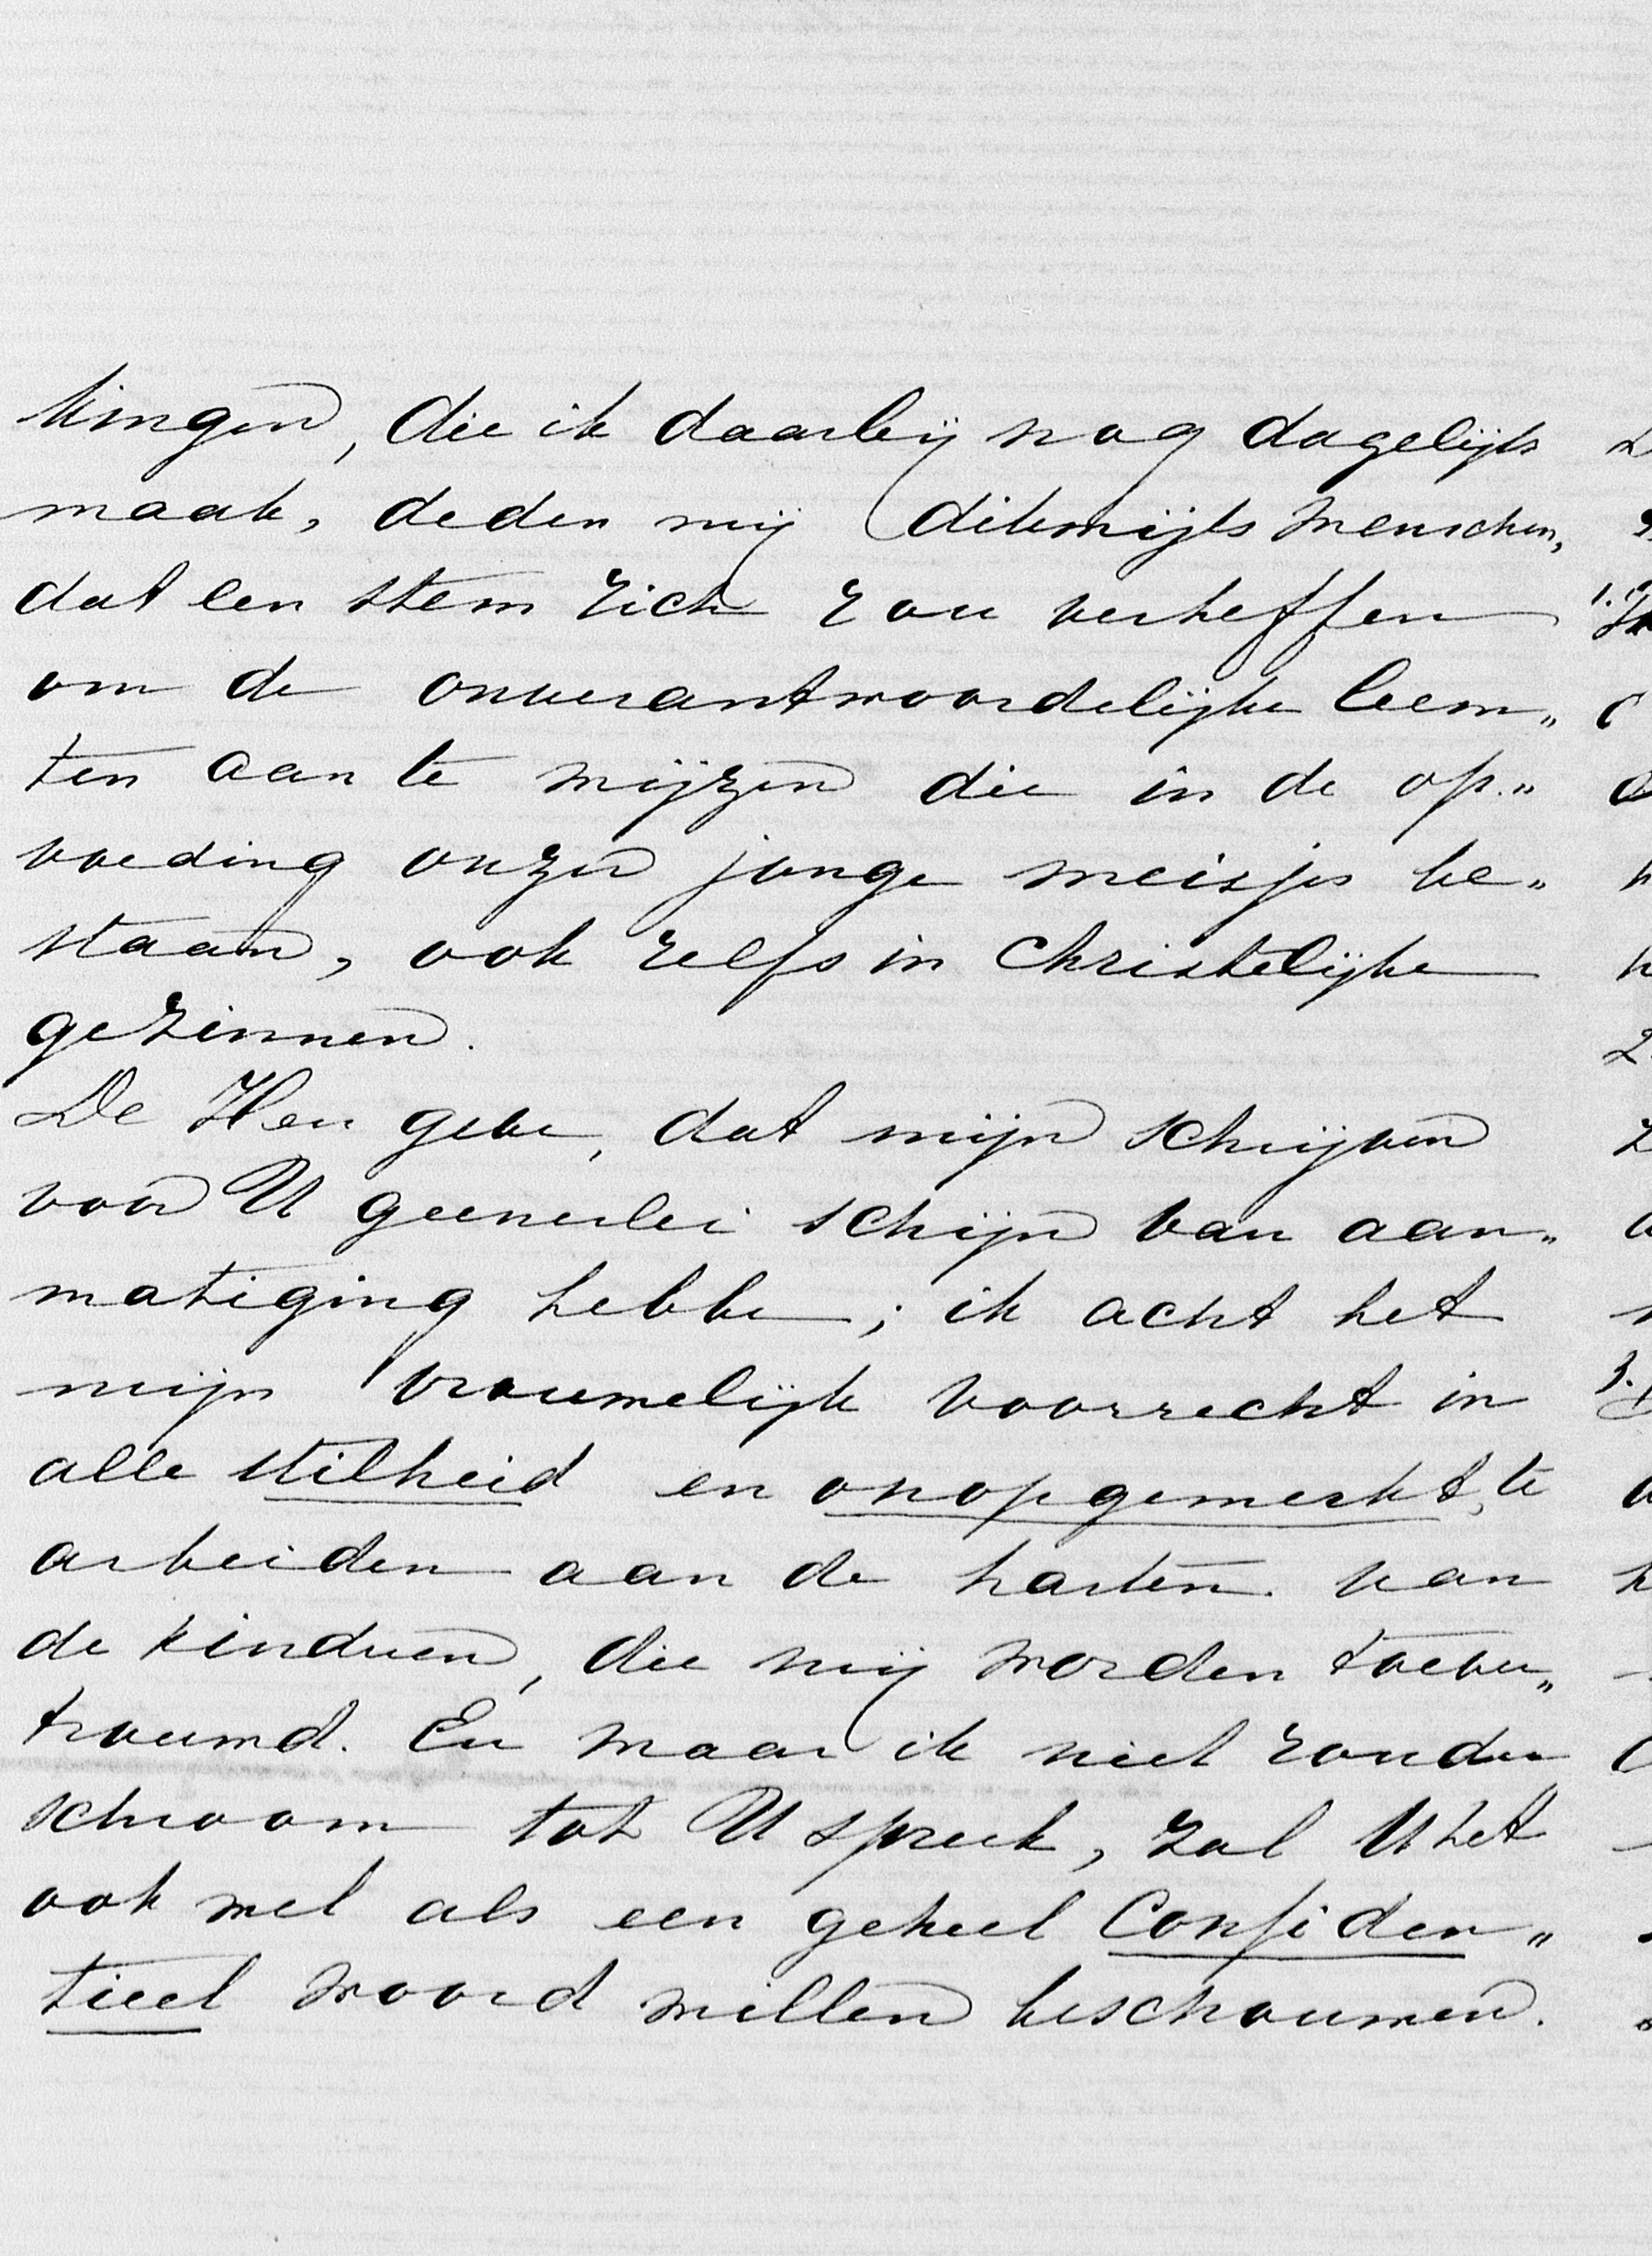 kingen, die ik daarbij nog dagelijks
maak, deden mij dikwijls wenschen,
dat een stem zich zou verheffen
om de onverantwoordelijke leem„
ten aan te wijzen die in de op„
voeding onzer jonge meisjes be„
staan, ook zelfs in Christelijke
gezinnen.
De Heer geve, dat mijn schrijven
voor U geenerlei schijn van aan„
matiging hebbe; ik acht het
mijn vrouwelijk voorrecht in
alle stilheid en onopgemerkt, te
arbeiden aan de harten van
de kinderen, die mij worden toever„
trouwd. En waar ik niet zonder
schroom tot U spreek, zal U het
ook wel als een geheel Confiden„
tieel woord willen beschouwen.